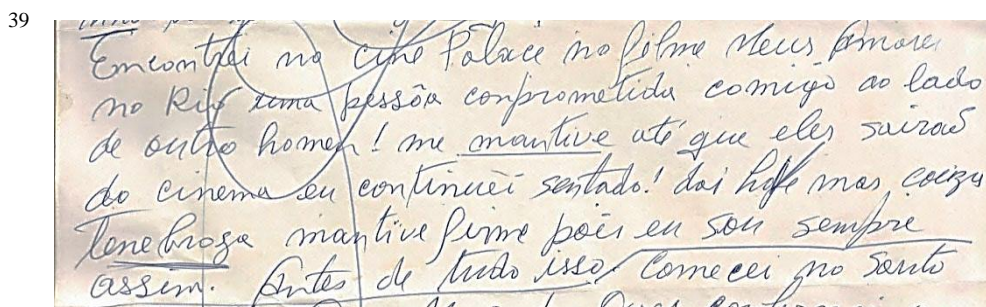 39
Encontrei no cine Palace no filme Meus Amores
no Rio uma pessôa conprometida comigo ao lado
de outro homen! me mantive até que eles sairão
do cinema eu continuei sentado! dai mas, coiza
tenebroza mantive firme pois eu sou sempre
assim. Antes de tudo isso, comecei no Santo